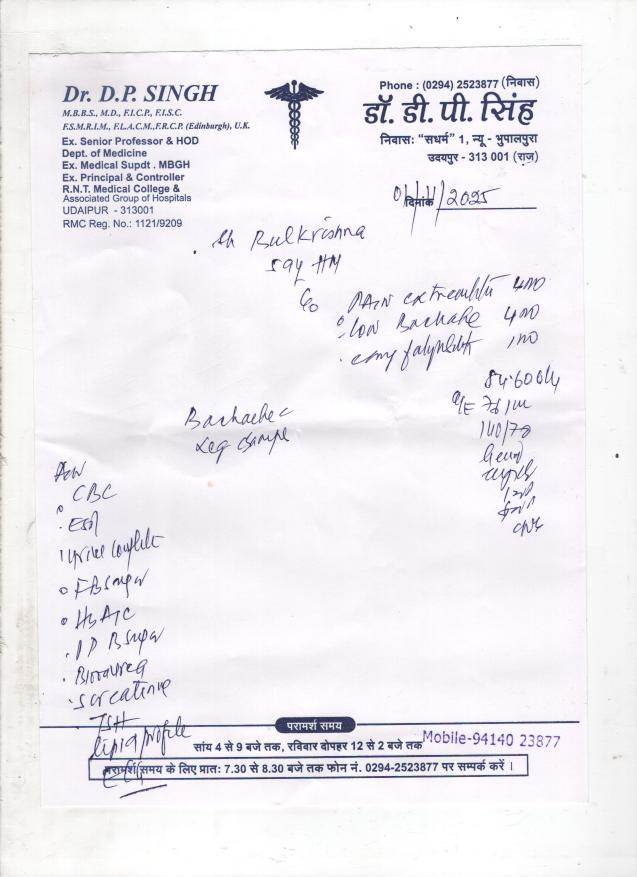 Dr. D.P. SINGH
M.B.B.S., M.D., F.I.C.P., F.I.S.C.
F.S.M.R.I.M., F.L.A.C.M.,F.R.C.P. (Edinburgh), U.K.
Ex. Senior Professor & HOD
Dept. of Medicine
Ex. Medical Supdt . MBGH
Ex. Principal & Controller
R.N.T. Medical College &
Associated Group of Hospitals
UDAIPUR - 313001
RMC Reg. No.: 1121/9209
Phone : (0294) 2523877 (निवास)
डॉ. डी. पी. सिंह
निवासः "सधर्म" 1, न्यू - भुपालपुरा
उदयपुर - 313 001 (राज)
दिनांक /2025
Bulkrishna
59y
PAIN
low Backache
easy
Backache
Leg
76/m
110/70
CBC
ESR
urine complete
FBsugar
HbA1C
PP Bsugar
Blood urea
S creatinine
TSH
lipid profile
परामर्श समय
सांय 4 से 9 बजे तक, रविवार दोपहर 12 से 2 बजे तक
Mobile-94140 23877
परामर्श समय के लिए प्रातः 7.30 से 8.30 बजे तक फोन नं. 0294-2523877 पर सम्पर्क करें ।